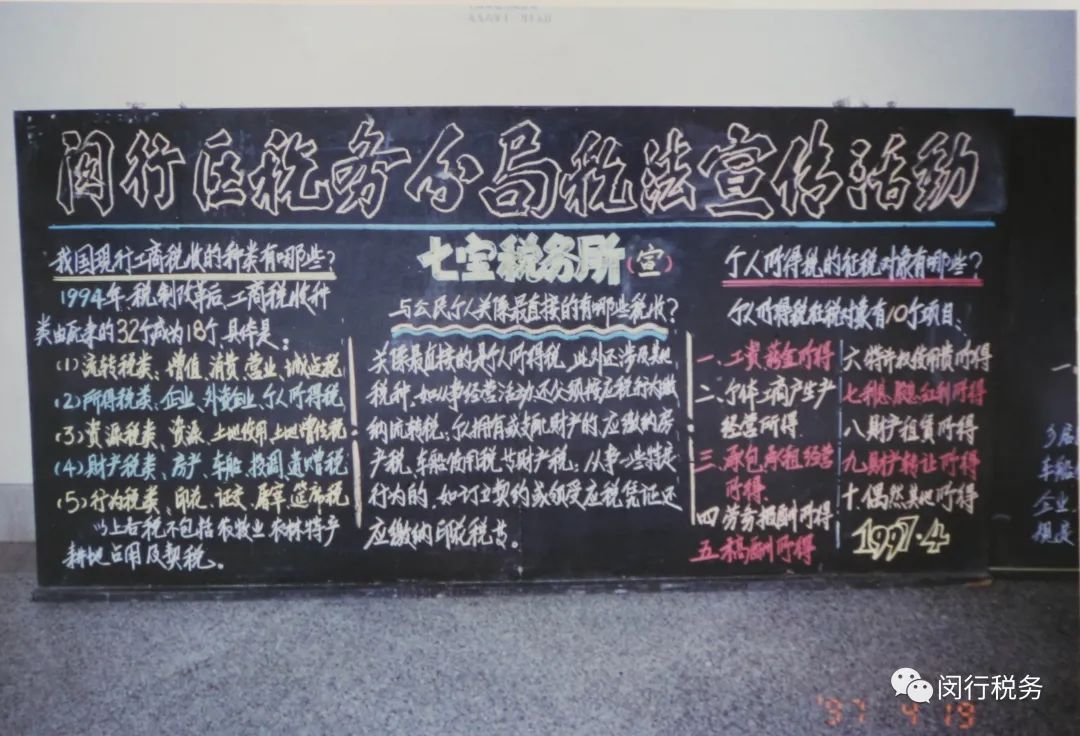 闵行区税务分局税法宣传活动
我国现行工商税收的种类有哪些?
1994年、税制改革后、工商税收种
类由原来的32个成为18个、具体是:
(1)流转税类、增值、消费、营业、城建税
(2)所得税类、企业、外资企业、个人所得税
(3)资源税类、资源、土地使用、土地增值税
(4)财产税类、房产、车船、投固、遗赠税
(5)行为税类、印花、证交、屠宰、筵席税
以上各税不包括农牧业农林特产
耕地占用及契税。
七宝税务所(宣)
与公民个人关系最直接的有哪些税收?
关系最直接的是个人所得税,此外还涉及其他
税种、如从事经营活动还必须按应税行为缴
纳流转税;仅拥有或支配财产的、应缴纳房
产税、车船使用税节财产税;从事一些特定
行为的、如订立契约或领受应税凭证还
应缴纳印花税节。
个人所得税的征税对象有哪些?
个人所得税征税对象有10个项目、
一、工资薪金所得
二、个体工商户生产
经营所得、
三、承包、承租经营
所得、
四 劳务报酬所得
五、稿酬所得
六、特许权使用费所得
七、利息、股息、红利所得
八 财产租赁所得
九、财产转让所得
十、偶然其他所得
1997.4
乡居
车船
企业
闵行税务
'97 4 19